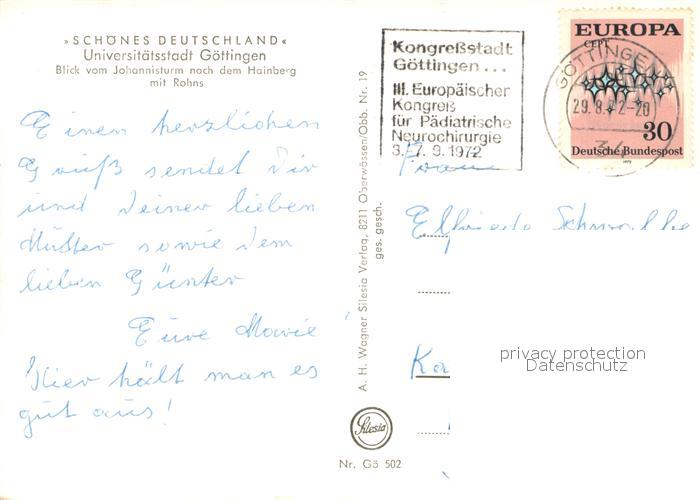 »SCHÖNES DEUTSCHLAND«
Universitätsstadt Göttingen
Blick vom Johannisturm nach dem Hainberg
mit Rohns
Einen herzlichen
Gruß sendet Dir
und Deiner lieben
Mutter sowie dem
lieben Günter
Eure Marie
Hier hält man es
gut aus!
A. H. Wagner Silesia Verlag, 8211 Oberwössen/Obb. Nr. 19
ges. gesch.
Silesia
Nr. Gö 502
Kongreßstadt
Göttingen...
III. Europäischer
Kongreß
für Pädiatrische
Neurochirurgie
3.-7. 9. 1972
EUROPA
CEPT
GÖTTINGEN
29.8.72-20
34
30
Deutsche Bundespost
1972
Frau
privacy protection
Datenschutz